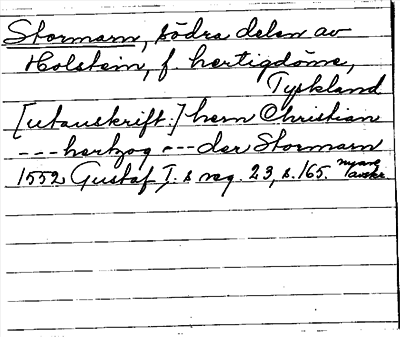 Stormarn, södra delen av
Holstein, f. hertigdöme,
Tyskland
[utanskrift:] hern Christian
--- hertzog --- der Stormarn
1552. Gustaf I:s reg. 23, s. 165. nyare
avskr.